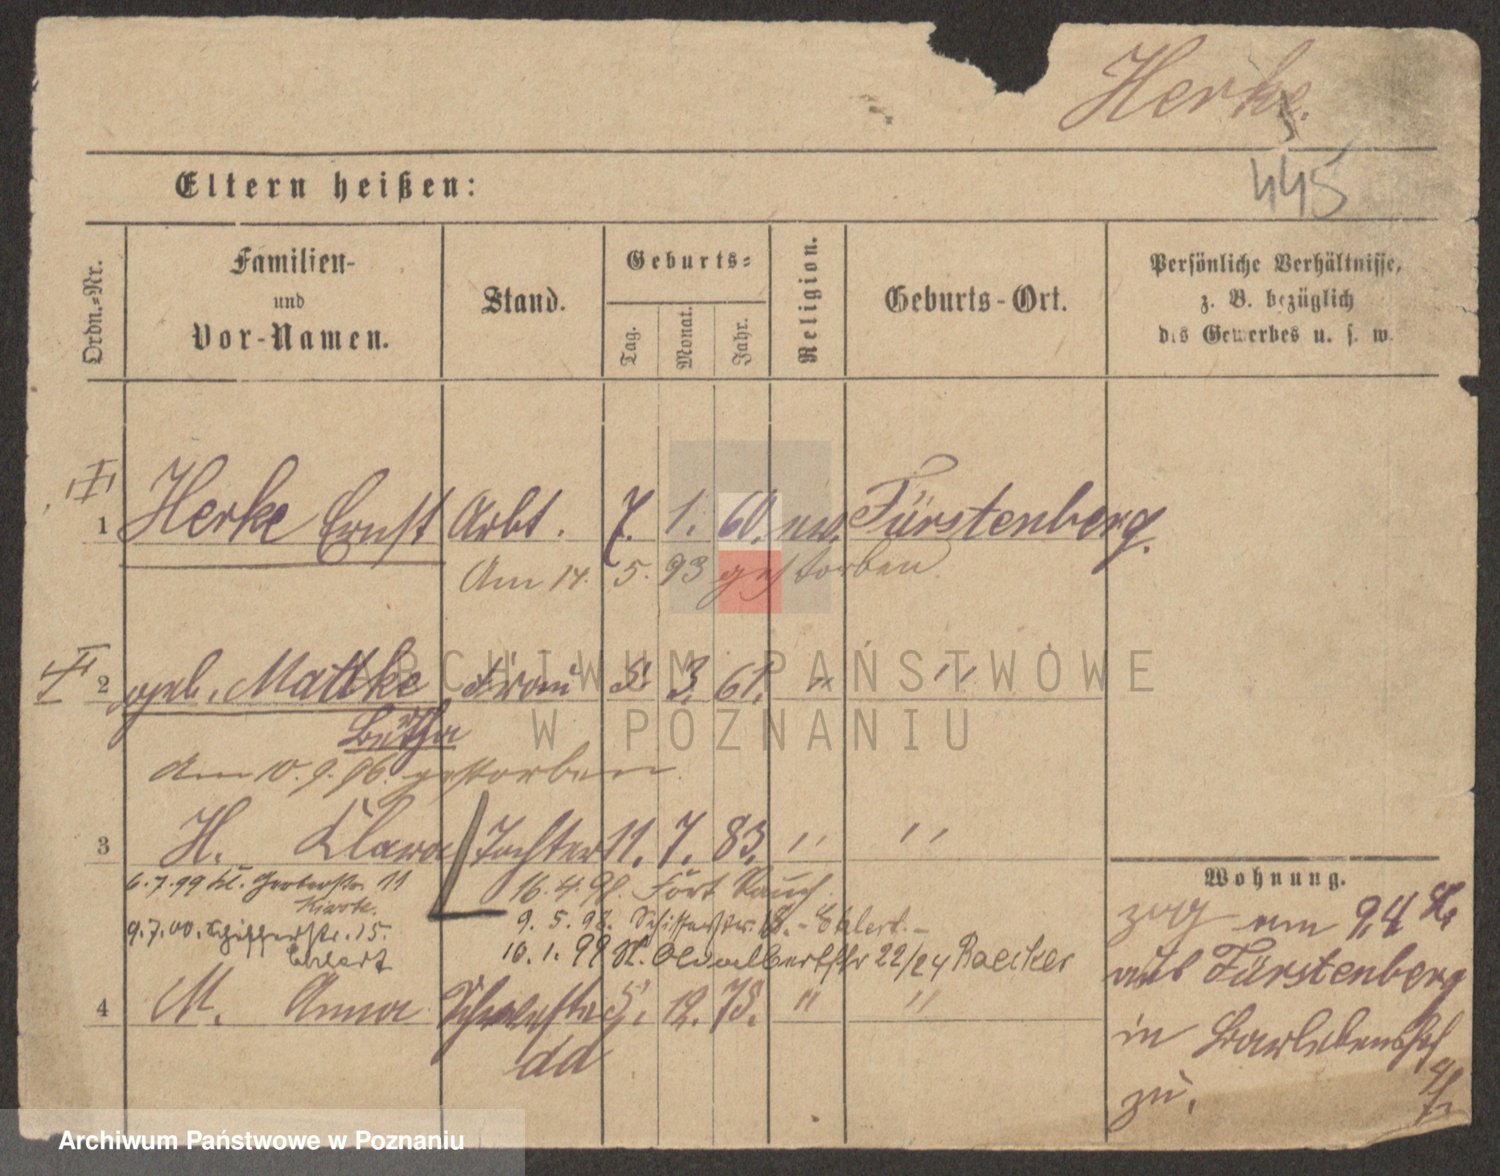 Herke.
445
Eltern heißen:
Ordn.-Nr.
Familien-
und
Vor-Namen.
Stand.
Geburts-
Tag.
Monat.
Jahr.
Religion.
Geburts-Ort.
Persönliche Verhältnisse,
z. B. bezüglich
des Gewerbes u. s. w.
1 Herke Ernst Arbt. 7. 1. 60. ev. Fürstenberg.
Am 14. 5. 93 gestorben.
2 geb. Mattke Frau 5. 3. 61. " "
Bertha
Am 10. 9. 96. gestorben.
3 H. Klara Tochter 11. 7. 83. " "
6.7.99 Kl. Gerberstr. 11
16.4.98. Fort Rauch.
9.7.00. Schifferstr. 15.
9. 5. 98. Schifferstr. 18. - Ehlert. -
Ehlert
10. 1. 99 St. Adalbertstr 22/24 Raecker
4 M. Anna Schwester 5. 12. 78. " "
dd
Wohnung.
zog am 9.4
aus Fürstenberg
in
zu.
ARCHIWUM PAŃSTWOWE
W POZNANIU
Archiwum Państwowe w Poznaniu